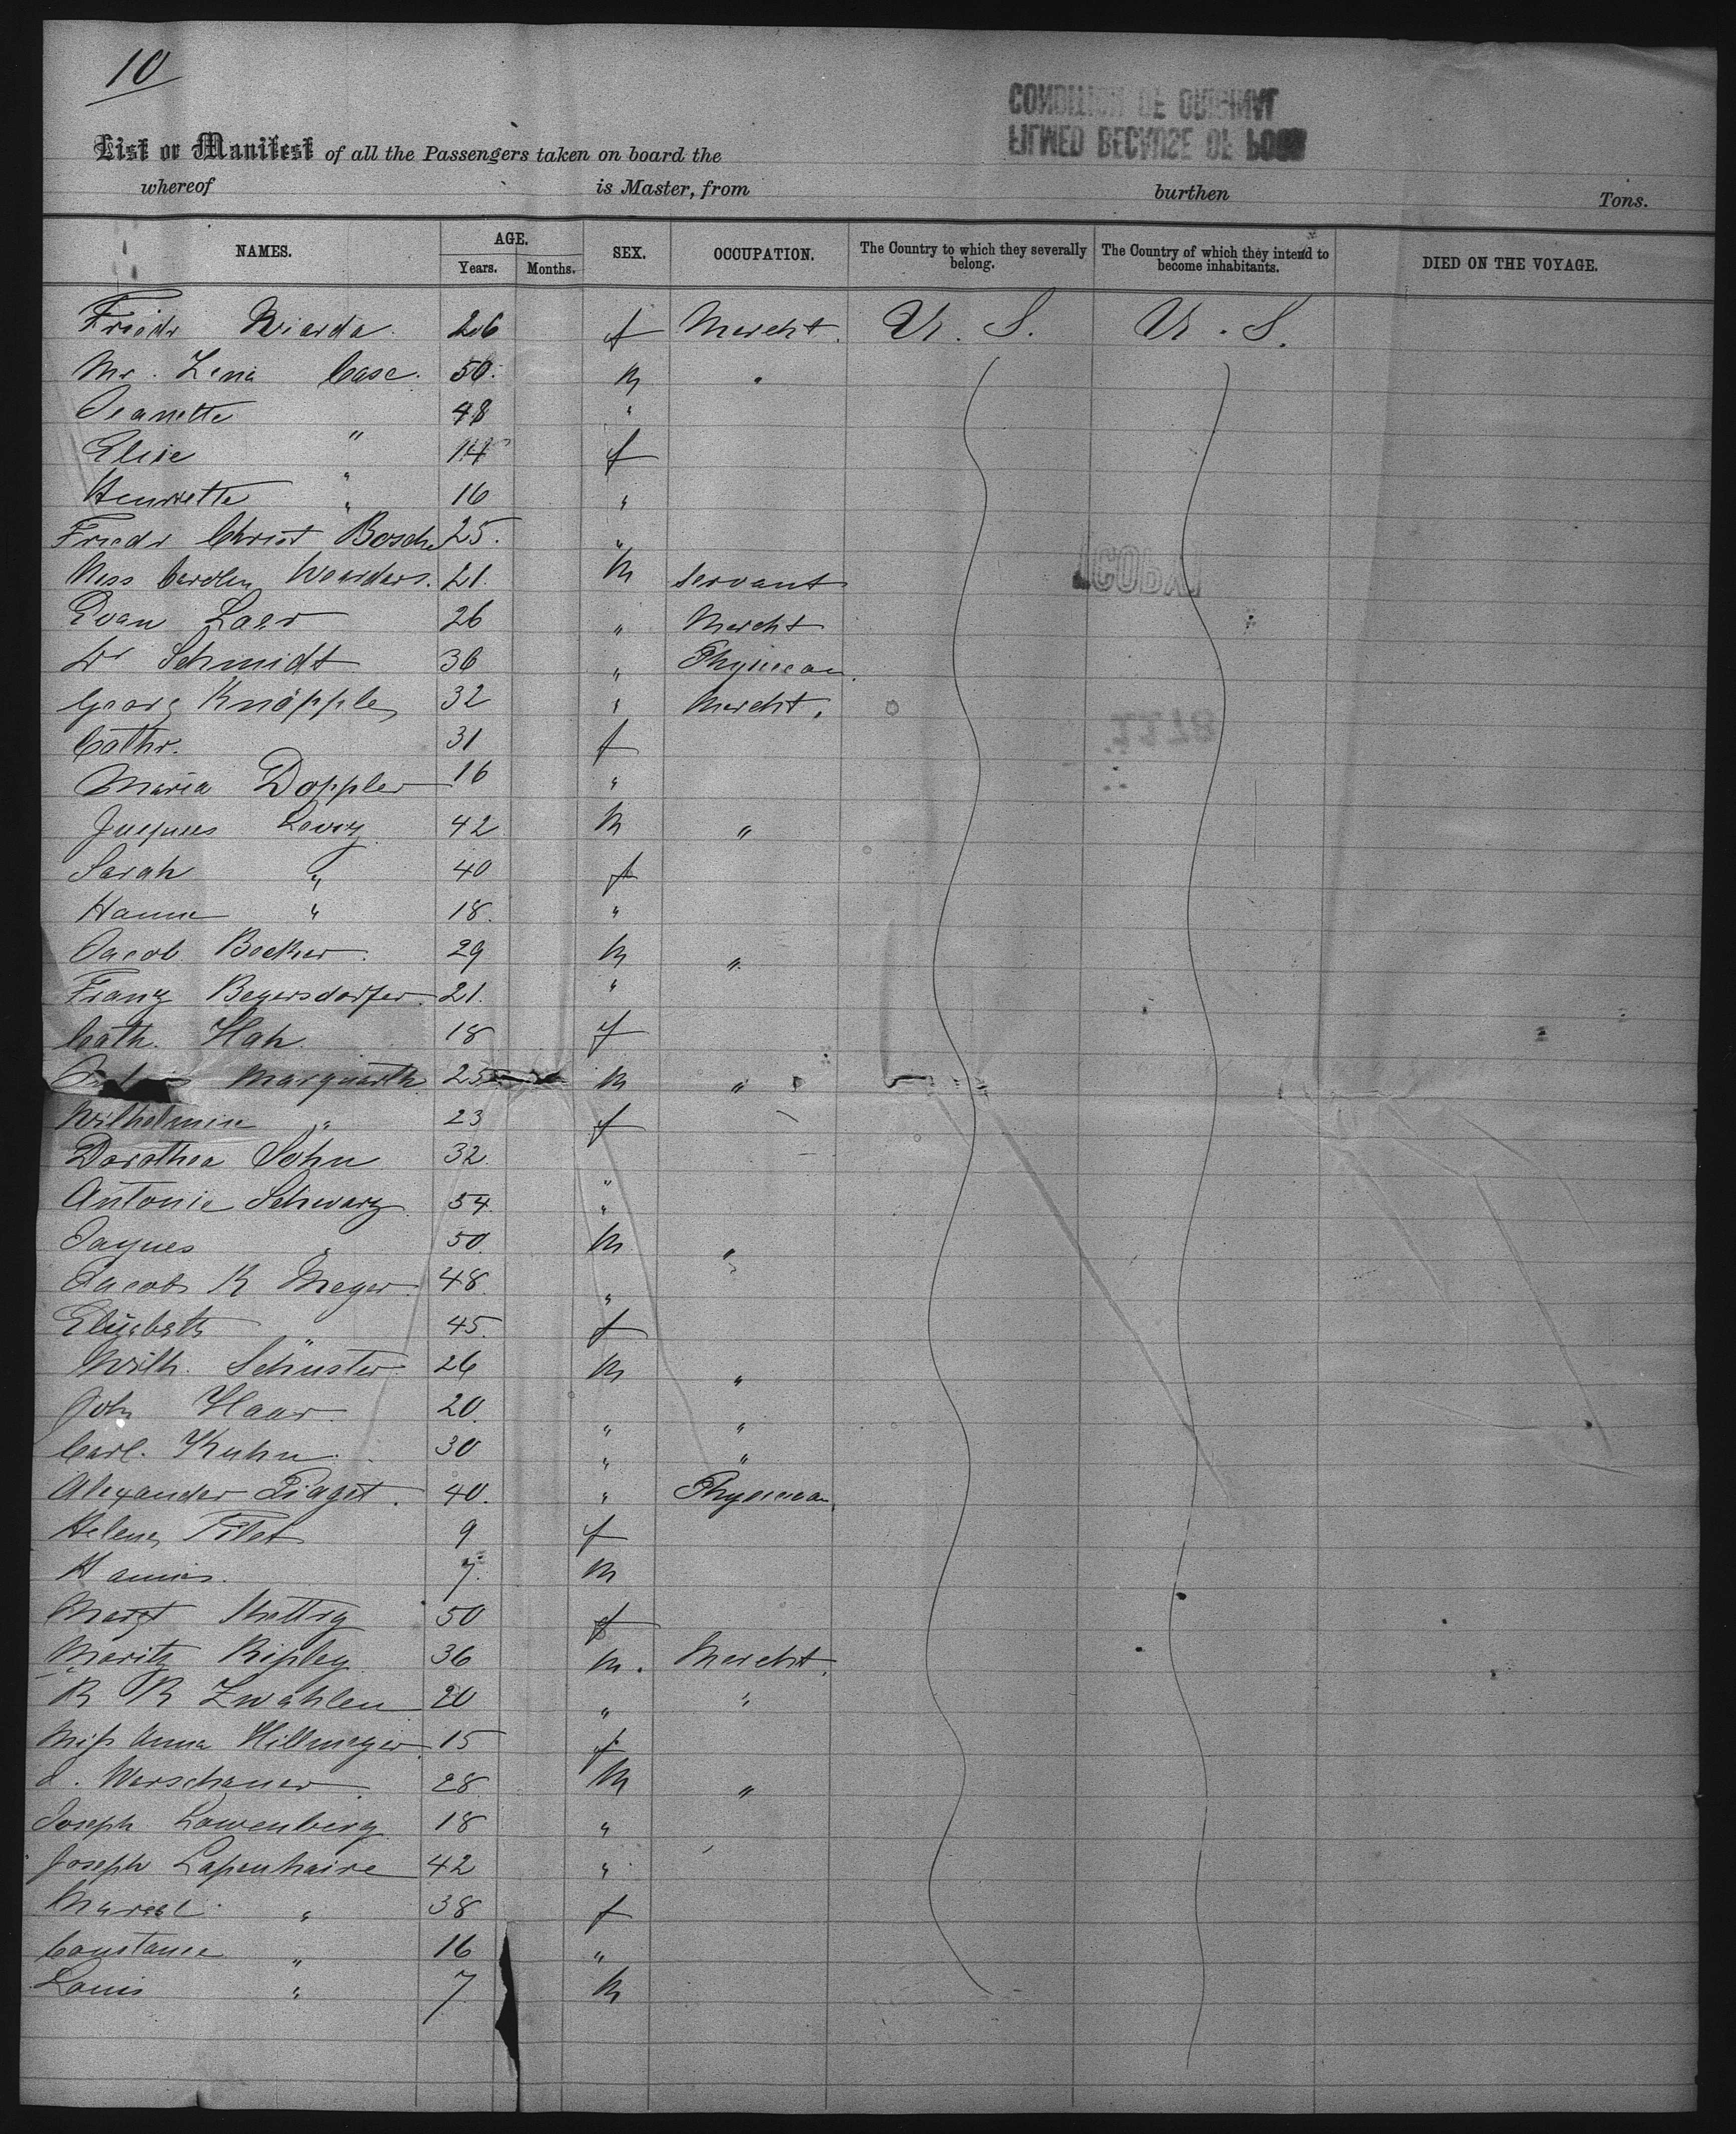 10
List or Manifest of all the Passengers taken on board the
whereof is Master, from burthen Tons.
NAMES. AGE. Years. Months. SEX. OCCUPATION. The Country to which they severally belong. The Country of which they intend to become inhabitants. DIED ON THE VOYAGE.
Friedr Wiarda 26 f Mercht. U. S. U. S.
Mr. Case. 50. m "
Jeanette " 48 "
Elise " 14 f
Henriette " 16 "
Friedr Christ Bosche 25. "
Miss Carolen 21. m servant
Evan Laer 26 " Mercht
Dr Schmidt 36 " Physician.
Georg Knöpple 32 " Mercht.
Cathr. 31 f
Maria Doppler 16 "
Jacques Levy 42 m "
Sarah " 40 f
Hanne " 18. "
Jacob Becker. 29 m "
Franz Beyersdorfer. 21. "
Cath. Hah. 18 f
Marquarth 25 m "
Wilhelmine " 23 f
Dorothea Sohn 32. "
Antonie Schwarz 54. "
Jaques " 50. m "
Jacob K Meyer 48. "
Elisabeth " 45. f
Wilh. Schuster. 26 m "
John Haar. 20. " "
Carl. Kuhn. 30 " "
Alexander Piaget. 40. " Physician.
Helene Filet 9 f
Hannes. 7. m
Margt 50 f
Moritz Ripley 36 m. Mercht.
R R Zwahlen 20 " "
Miss Anna Hillmeyer 15 f
L. Warschauer. 28 m "
Joseph Lowenberg 18 "
Joseph Lapenhaire 42 "
" 38 f
Constance " 16 "
Louis " 7 m